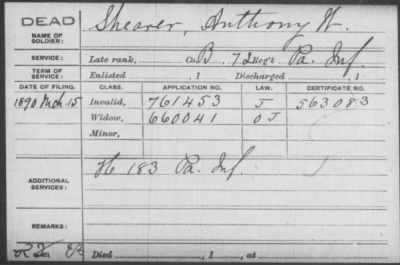 DEAD
NAME OF SOLDIER: Shearer, Anthony W.
SERVICE: Late rank, Co. B. 72 Reg't Pa. Inf.
TERM OF SERVICE: Enlisted , 1 Discharged , 1
DATE OF FILING. CLASS. APPLICATION NO. LAW. CERTIFICATE NO.
1890 Mch. 15 Invalid, 761453 J 563083
Widow, 660041 O J
Minor,
ADDITIONAL SERVICES: H 183 Pa. Inf.
REMARKS:
Died , 1 , at